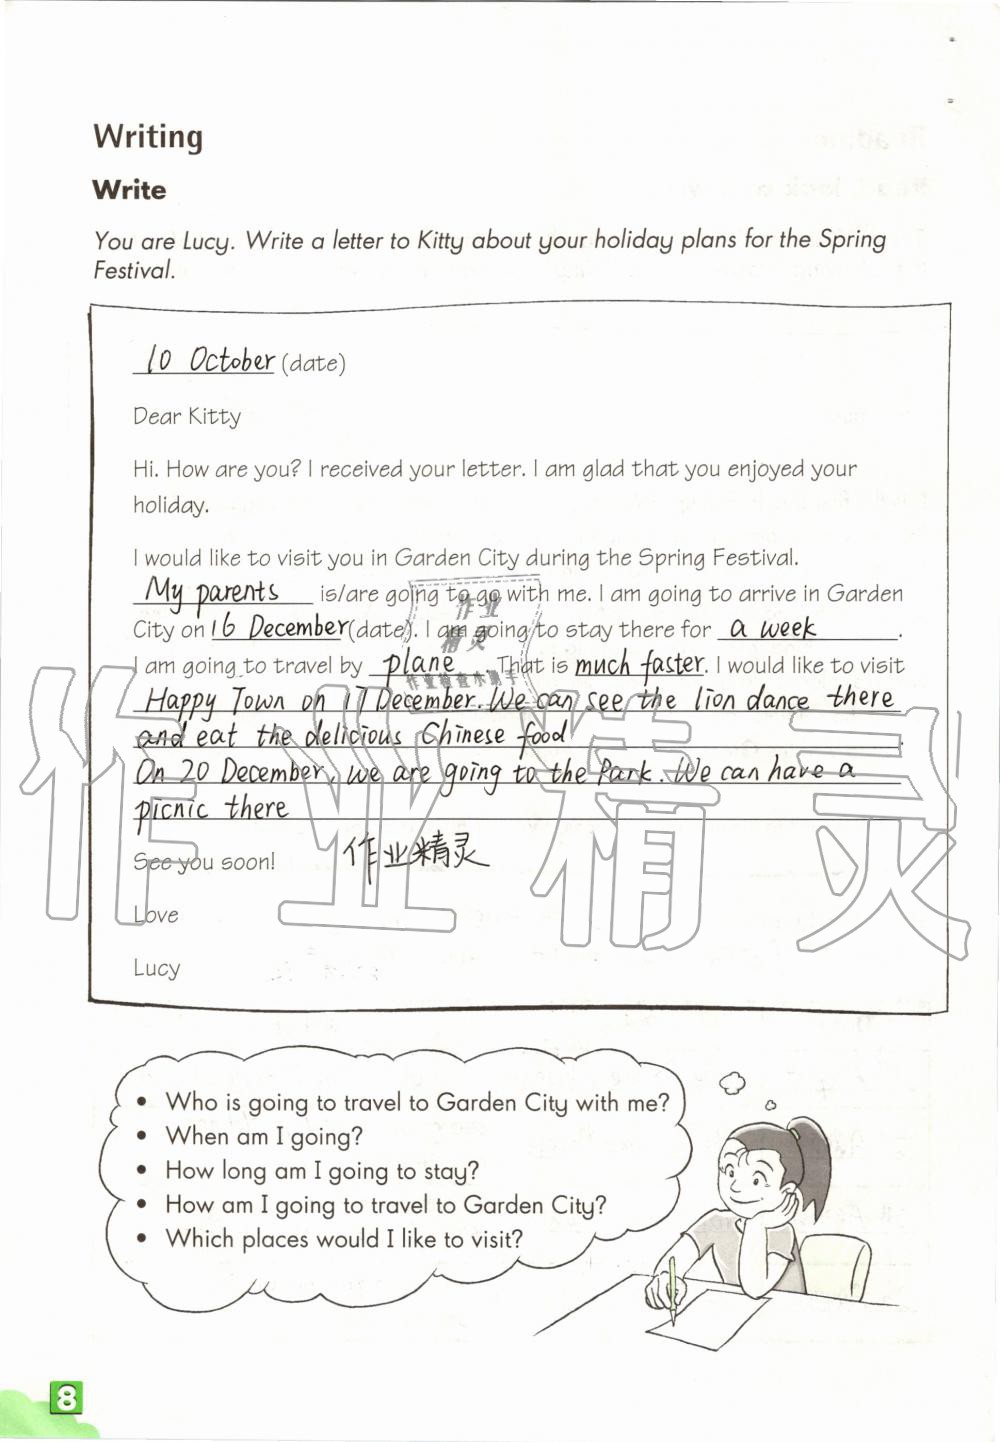 Writing
Write
You are Lucy. Write a letter to Kitty about your holiday plans for the Spring
Festival.
10 October (date)
Dear Kitty
Hi. How are you? I received your letter. I am glad that you enjoyed your
holiday.
I would like to visit you in Garden City during the Spring Festival.
My parents is/are going to go with me. I am going to arrive in Garden
City on 16 December (date). I am going to stay there for a week.
I am going to travel by plane. That is much faster. I would like to visit
Happy Town on 17 December. We can see the lion dance there
and eat the delicious Chinese food.
On 20 December, we are going to the Park. We can have a
picnic there
See you soon!
作业精灵
Love
Lucy
作业
精灵
作业检查小助手
作业精灵
• Who is going to travel to Garden City with me?
• When am I going?
• How long am I going to stay?
• How am I going to travel to Garden City?
• Which places would I like to visit?
8